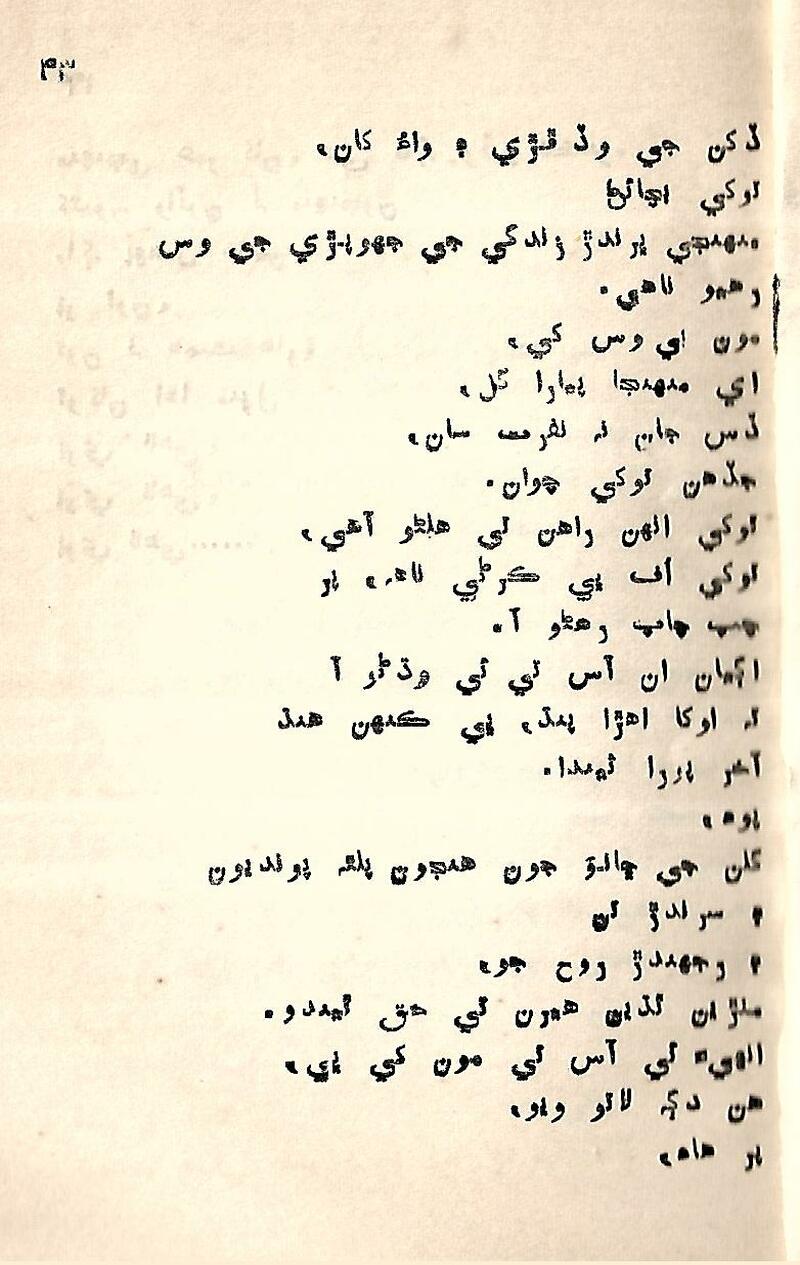 ۴۳
ڏکن جي وڏ ڦڙي ۽ واءُ کان،
توکي بچائڻ
منهنجي ٻرندڙ زندگي جي جهوپڙي جي وس
رهيو ناهي.
مون بي وس کي،
اي منهنجا پيارا گل،
ڏس جاچ نه نفرت سان،
جڏهن توکي چوان.
توکي انهن راهن تي هلڻو آهي،
توکي اُف ٻي ڪرڻي ناهہ، پر
چپ چاپ رهڻو آ.
اڳيان ان آس تي ئي وڌڻو آ
تہ اوکا اهڙا پنڌ، ٻي ڪنهن هنڌ
آخر پورا ٿيندا.
پوءِ،
گلن جي چانڊوڪي جون هنجون پلئہ پونديون
۽ سرندڙ تن
۽ رجهندڙ روح جو،
ملڙ ان ٿڌين هيرن تي حق ٿيندو.
انهيءَ ئي آس تي مون کي ٻي،
هن دڳہ لاتو ويو،
پر هاءِ،